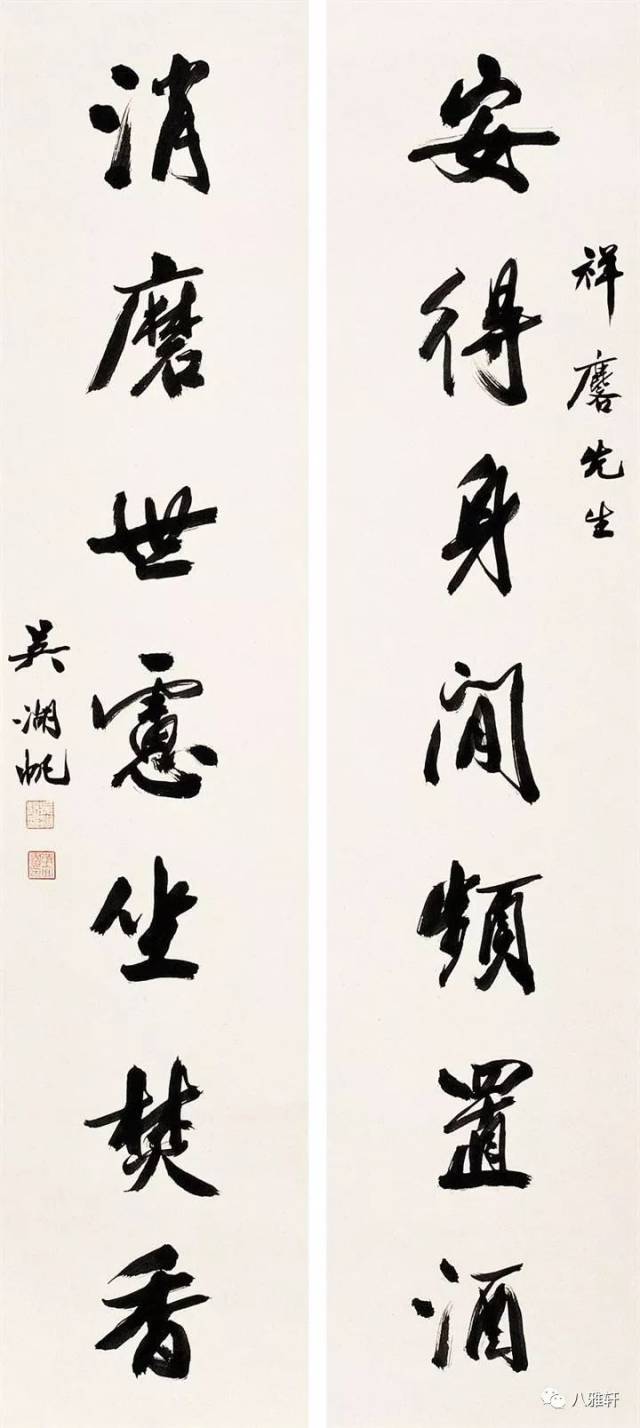 祥麐先生
安得身閒頻置酒
消磨世慮坐焚香
吴湖帆
八雅轩